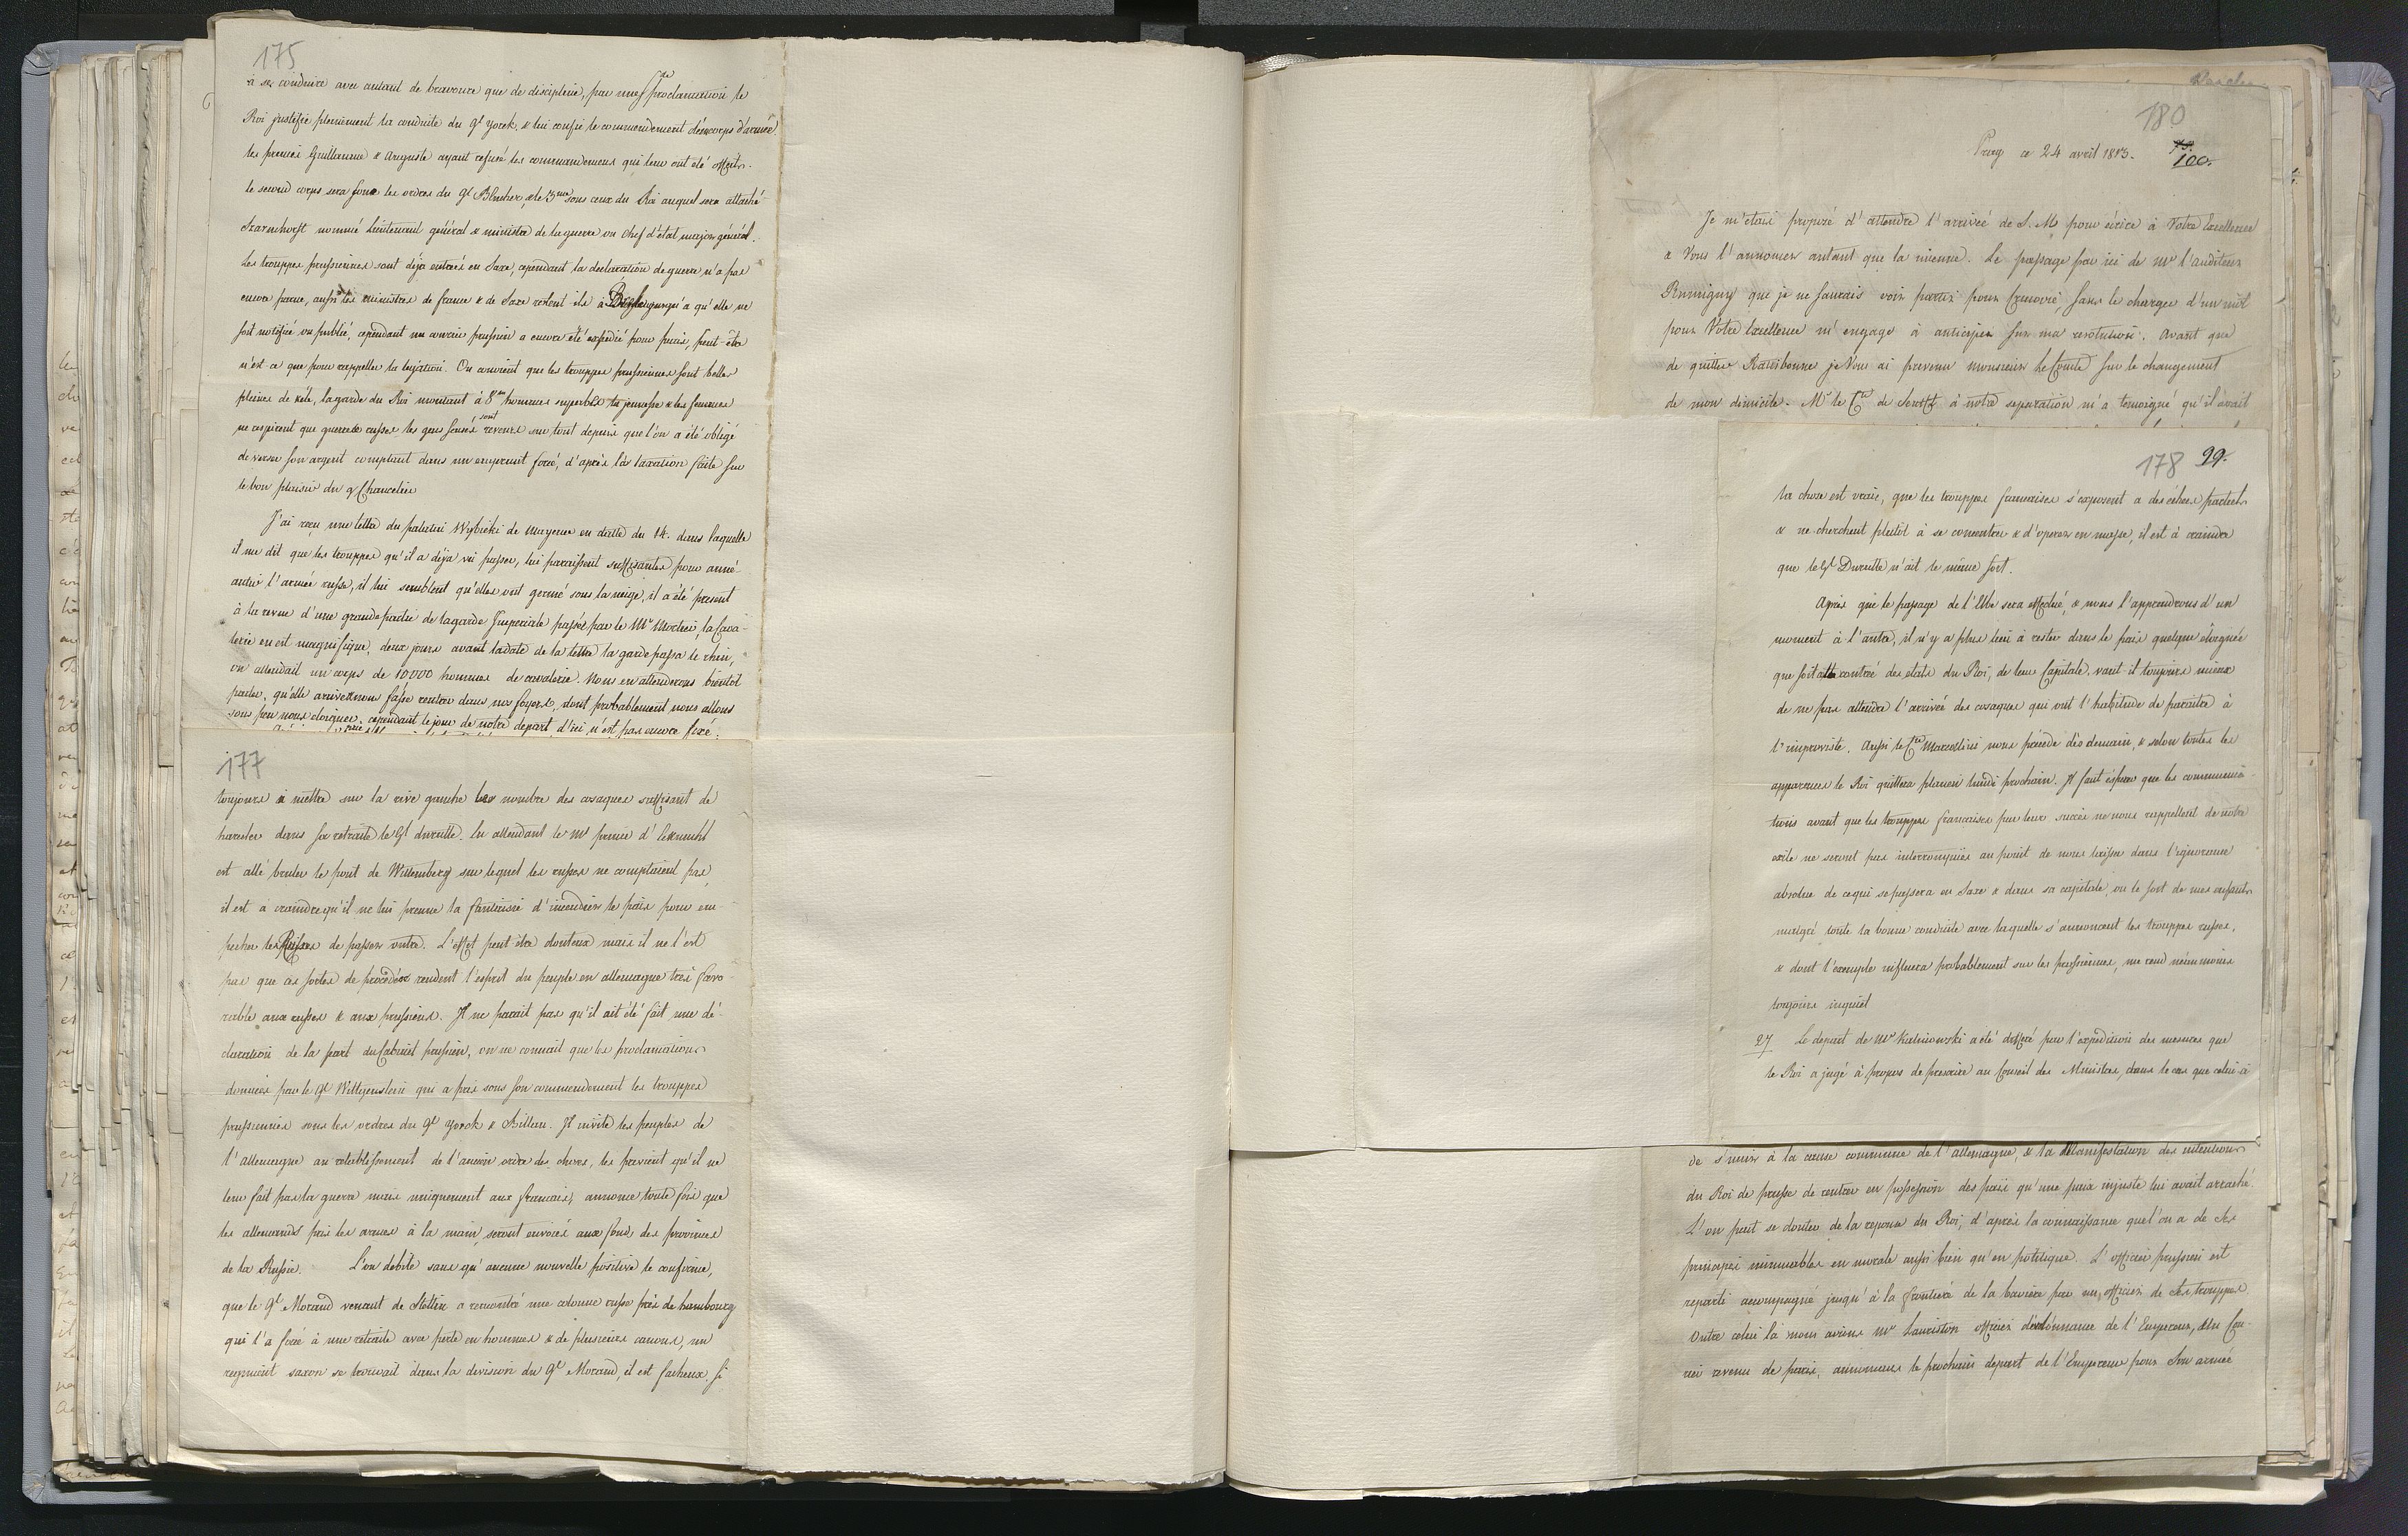 175
à se conduire avec autant de bravoure que de discipline, par une de proclamation le
Roi justifie pleinement la conduite du Gl Yorck, & lui confie le commendement d'un corps d'armée.
les princes Guillaume & Auguste ayant refusé les commandemens qui leur ont été offerts.
le second corps sera sous les ordres du Gl Blucher, & le 3me sous ceux du Roi auquel sera attaché
Szarnhorst nommé Lieutenant général & ministre de la guerre ou chef d'état major général.
Les trouppes prussiennes sont déja entrées en Saxe, cependant la declaration de guerre n'a pas
encore parue, aussi les ministres de france & de Saxe restent-ils à jusqu'a qu'elle ne
soit notifiée ou publié, cependant un courrier prussien a encore été expédié pour paris, peut-etre
n'est ce que pour rappeller la legation. On convient que les trouppes prussiennes sont belles
pleines de zèle, la garde du Roi montant à 8m hommes superbes la jeunesse & les femmes
ne respirent que guerre & russes les gens sensés sont revenus sur tout depuis que l'on a été obligé
de verser son argent comptant dans un emprunt forcé, d'après la taxation faite sur
le bon plaisir du g Chancelier
J'ai reçu une lettre du palatin Wybicki de Mayence en datte du 14. dans laquelle
il me dit que les trouppes qu'il a déja vu passer, lui paraissent suffisantes pour ané-
antir l'armée russe, il lui semblent qu'elles ont germé sous la neige, il a été present
à la revue d'une grande partie de la garde Imperiale passée par le Ml Mortier, la Cava-
lerie en est magnifique, deux jours avant la date de la lettre la garde passa le rhin,
on attendait un corps de 10000 hommes de cavalerie. Nous en attenderons bientôt
parler, qu'elle arrive & nous fasse rentrer dans nos foyers, dont probablement nous allons
sous peu nous eloigner, cependant le jour de notre depart d'ici n'est pas encore fixé.
177
toujours à mettre sur la rive gauche le nombre des cosaques suffisant de
harceler dans sa retraite le Gl durutte. En attendant le Ml prince d'Eckmuhl
est allé bruler le pont de Wittemberg sur lequel les russes ne comptaient pas,
il est à craindre qu'il ne lui prenne la fantaisie d'incendier le païs pour em-
pecher les Russes de passer outre. L'effet peut-être douteux mais il ne l'est
pas que ces sortes de procédés rendent l'esprit du peuple en allemagne tres favo-
rable aux russes & aux prussiens. Il ne parait pas qu'il ait été fait une dé-
claration de la part du Cabinet prussien, on ne connait que les proclamations
données par le Gl Wittgenstein qui a pris sous son commendement les trouppes
prussiennes sous les ordres du Gl Yorck & Billau. Il invite les peuples de
l'allemagne au retablissement de l'ancien ordre des choses, les previent qu'il ne
leur fait pas la guerre mais uniquement aux francais, annonce toute fois que
les allemands pris les armes à la main, seront envoiés aux fond des provinces
de la Russie. L'on debite sans qu'aucune nouvelle positive le confirme,
que le Gl Morand venant de Stettin a rencontré une colonne russe près de hambourg
qui l'a forcé à une retraite avec perte en hommes & de plusieurs canons, un
regiment saxon se trouvait dans la division du Gl Morand, il est facheux, si
180
100.
Prag ce 24 avril 1813.
Je m'étais proposé d'attendre l'arrivée de S. M. pour écrire à Votre Excellence
& Vous l'annoncer autant que la mienne. Le passage par ici de Mr l'auditeur
Rumigny que je ne saurais voir partir pour Cracovie, sans le charger d'un mot
pour Votre Excellence m'engage à anticiper sur ma resolution. Avant que
de quitter Ratisbonne je Vous ai prevenu monsieur Le Comte sur le changement
de mon domicile. Mr le Cte de Senfft à notre separation m'a temoigné qu'il avait
178 99.
la chose est vraie, que les trouppes francaises s'exposent a des échecs partiels
& ne cherchent plutôt à se concentrer & d'operer en masse, il est à craindre
que le Gl Durutte n'ait le même sort.
Après que le passage de l'Elbe sera effectué, & nous l'apprendrons d'un
moment à l'autre, il n'y a plus à rester dans le païs quelque eloignée
que soit cette contrée des etats du Roi, de leur Capitale, vaut-il toujours mieux
de ne pas attendre l'arrivée des cosaques qui ont l'habitude de paraitre à
l'improviste. Aussi le Cte Marcolini nous précede dès demain, & selon toutes les
apparences le Roi quittera plauen lundi prochain. Il faut ésperer que les communica-
tions avant que les trouppes francaises par leur succès ne nous rappellent de notre
exile ne seront pas interrompües au point de nous laisser dans l'ignorance
absolue de ce qui se passera en Saxe & dans sa capitale, ou le sort de mes enfants
malgré toute la bonne conduite avec laquelle s'annoncent les trouppes russes,
& dont l'exemple influera probablement sur les prussiennes, me rend néanmoins
toujours inquiet
27 Le depart de Mr Kalinowski a été différé par l'expedition des mesures que
le Roi a jugé à propos de prescrire au Conseil des Ministres, dans le cas que celui-ci
de s'unir à la cause commune de l'allemagne, & la Manifestation des intentions
du Roi de prusse de rentrer en possession des païs qu'une paix injuste lui avait arraché.
L'on peut se douter de la reponse du Roi, d'après la connaissance que l'on a de ses
principes immuables en morale aussi bien qu'en politique. L'officier prussien est
reparti accompagné jusqu'à la frontiere de la baviere par un officier de ses trouppes.
Outre celui là nous avions Mr Lauriston officier d'ordonnance de l'Empereur, & un Cou-
rier revenu de paris, annoncans le prochain depart de l'Empereur pour son armée